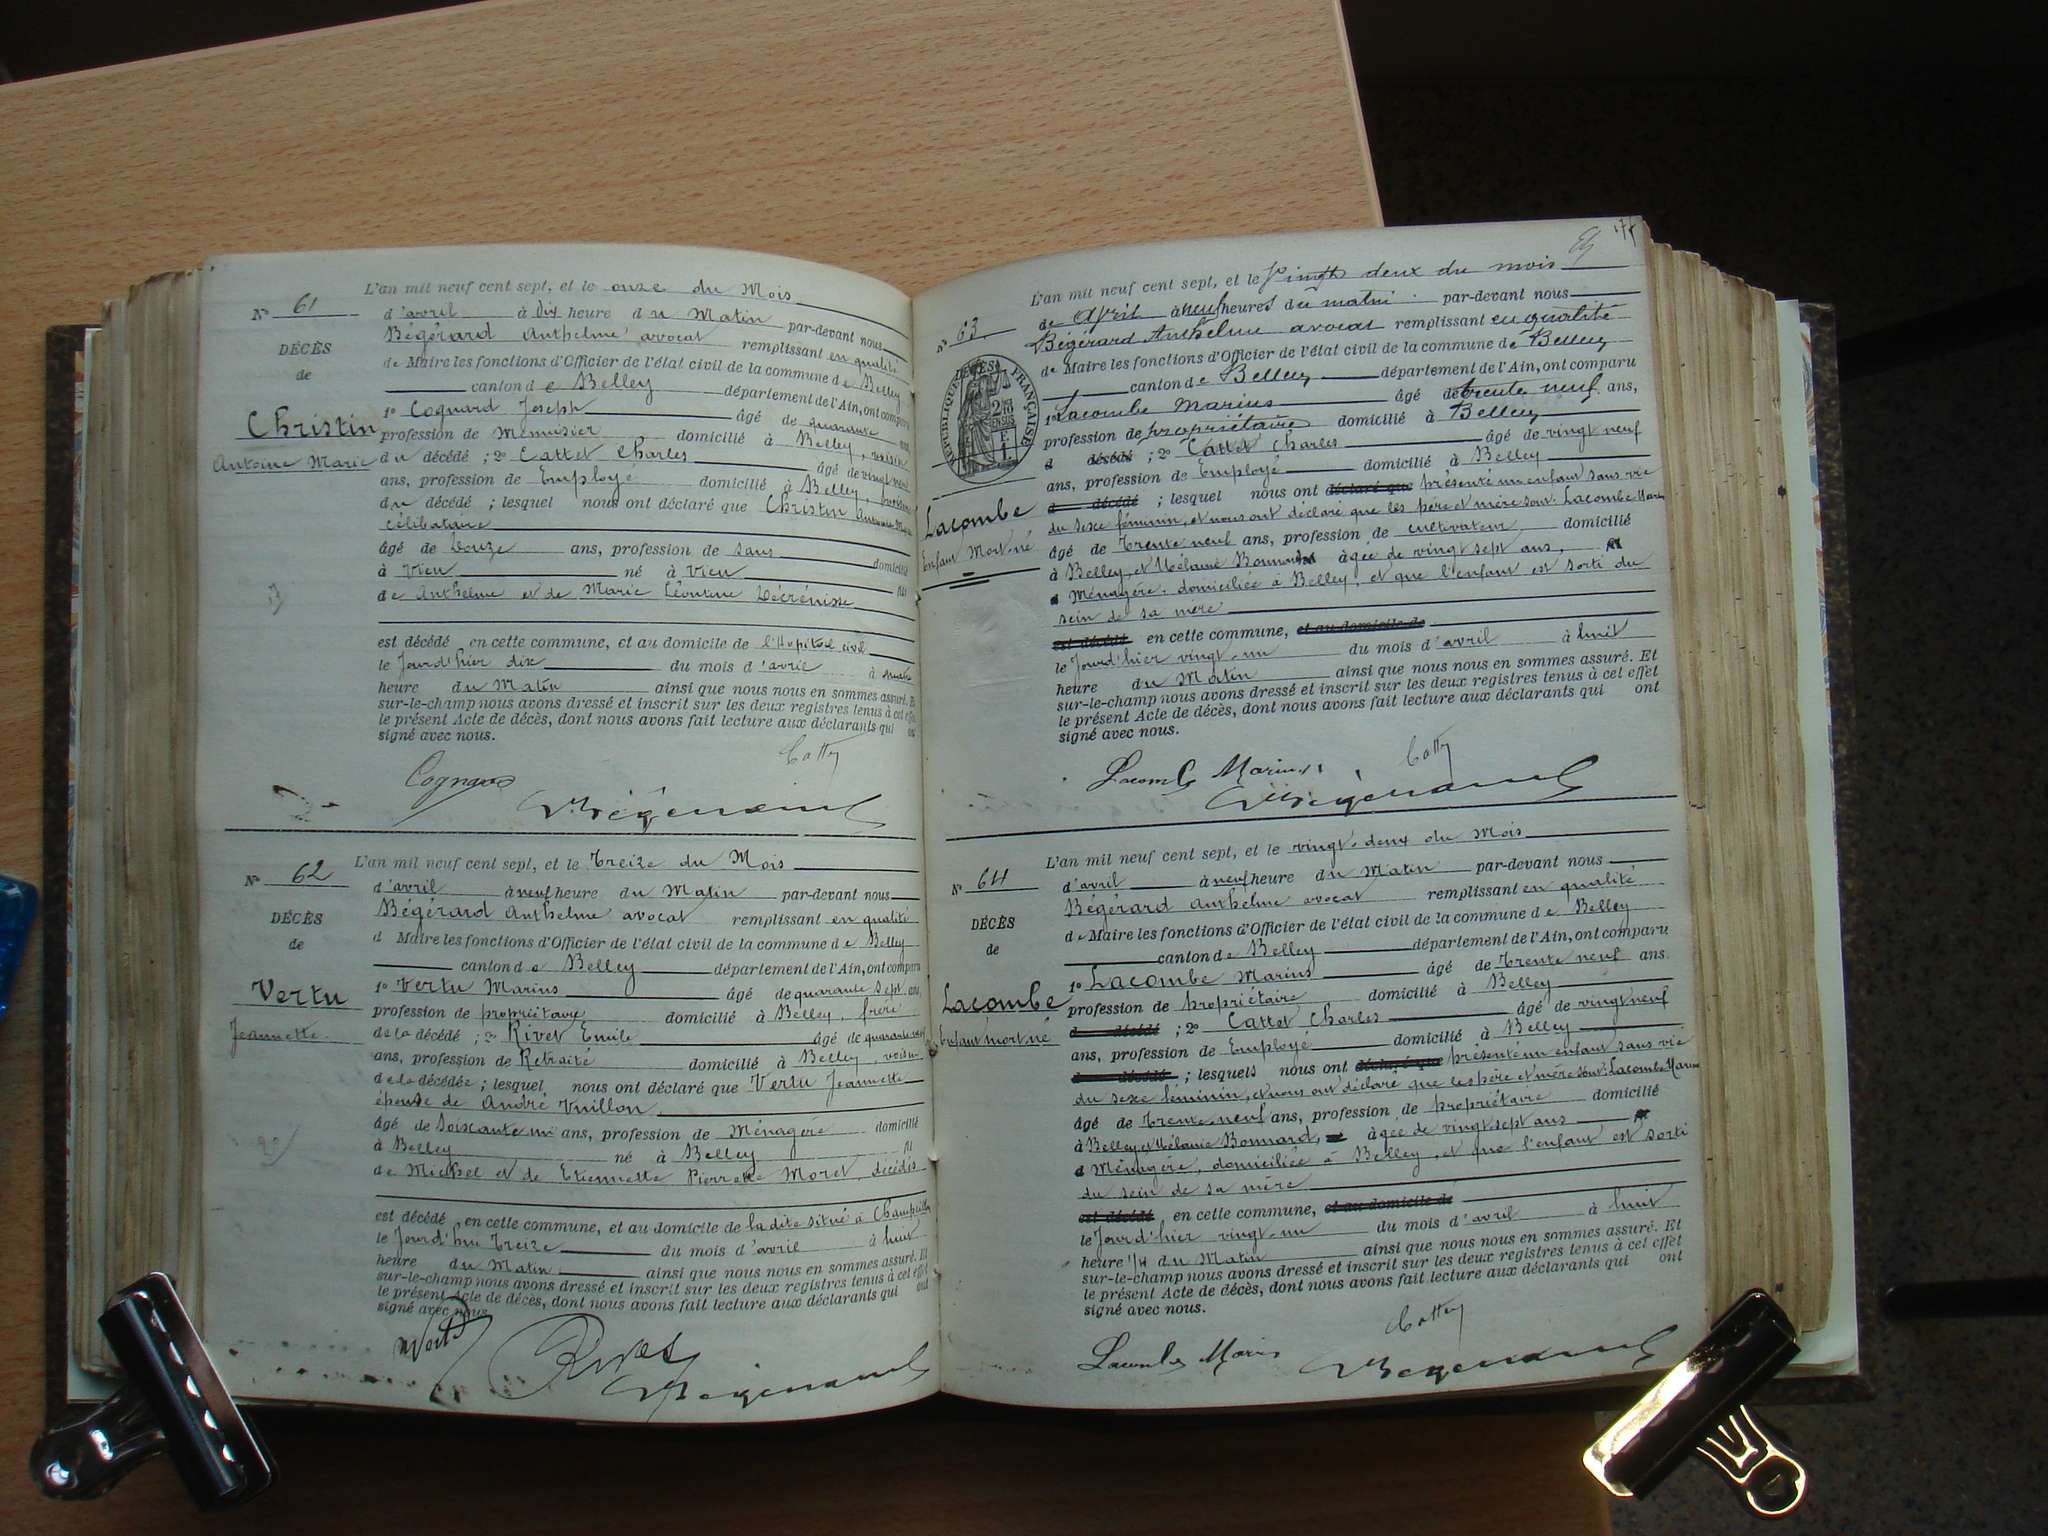 L'an mil neuf cent sept, et le onze du Mois
N° 61
d'avril à dix heure du Matin par-devant nous
Bégérard Anthelme avocat remplissant en qualité
DÉCÈS
de Maire les fonctions d'Officier de l'état civil de la commune de Belley
de
canton de Belley département de l'Ain, ont comparu
Christin
Antoine Marie
1° Cognard Joseph âgé de quarante ans
profession de Menuisier domicilié à Belley, voisin
du décédé ; 2° Cattet Charles âgé de vingt neuf
ans, profession de Employé domicilié à Belley,
du décédé ; lesquel nous ont déclaré que Christin Antoine Marie
célibataire
âgé de Douze ans, profession de sans domicilié
à Vieu né à Vieu fils
de Anthelme et de Marie Léontine Décrénisse
est décédé en cette commune, et au domicile de l'Hopital civil
le Jourd'hier dix du mois d'avril à quatre
heure du Matin ainsi que nous nous en sommes assuré. Et
sur-le-champ nous avons dressé et inscrit sur les deux registres tenus à cet effet
le présent Acte de décès, dont nous avons fait lecture aux déclarants qui ont
signé avec nous.
Cattet
Cognard
Bégérard
L'an mil neuf cent sept, et le Treize du Mois
N° 62
d'avril à neuf heure du Matin par-devant nous
Bégérard Anthelme avocat remplissant en qualité
DÉCÈS
d Maire les fonctions d'Officier de l'état civil de la commune de Belley
de
canton de Belley département de l'Ain, ont comparu
Vertu
Jeannette
1° Vertu Marius âgé de quarante sept ans,
profession de propriétaire domicilié à Belley, frère
de la décédé ; 2° Rivet Emile âgé de quarante
ans, profession de Retraité domicilié à Belley, voisin
de la décédée ; lesquel nous ont déclaré que Vertu Jeannette
épouse de André Vuillon
âgé de Soixante un ans, profession de Ménagère domicilié
à Belley né à Belley fil
de Michel et de Etiennette Pierrette Moret, décédés
est décédé en cette commune, et au domicile de la dite situé à
le Jourd'hui Treize du mois d'avril à huit
heure du Matin ainsi que nous nous en sommes assuré. Et
sur-le-champ nous avons dressé et inscrit sur les deux registres tenus à cet effet
le présent Acte de décès, dont nous avons fait lecture aux déclarants qui ont
signé avec nous.
Vertu
Rivet
Bégérard
L'an mil neuf cent sept, et le Vingt deux du mois
N° 63
de Avril à neuf heures du matin par-devant nous
Bégérard Anthelme avocat remplissant en qualité
RÉPUBLIQUE FRANÇAISE
de Maire les fonctions d'Officier de l'état civil de la commune de Belley
canton de Belley département de l'Ain, ont comparu
1° Lacombe Marius âgé de trente neuf ans,
profession de propriétaire domicilié à Belley
d décédé ; 2° Cattet Charles âgé de vingt neuf
ans, profession de Employé domicilié à Belley
Lacombe
Enfant Mort-né
d décédé ; lesquel nous ont déclaré que présenté un enfant sans vie
du sexe féminin, et nous ont déclaré que les père et mère sont: Lacombe Marius
âgé de Trente neuf ans, profession de cultivateur domicilié
à Belley, et Mélanie Bonnard âgée de vingt sept ans,
Ménagère, domiciliée à Belley, et que l'enfant est sorti du
sein de sa mère
est décédé en cette commune, et au domicile de
le Jourd'hier vingt-un du mois d'avril à huit
heure du Matin ainsi que nous nous en sommes assuré. Et
sur-le-champ nous avons dressé et inscrit sur les deux registres tenus à cet effet
le présent Acte de décès, dont nous avons fait lecture aux déclarants qui ont
signé avec nous.
Cattet
Lacombe Marius
Bégérard
L'an mil neuf cent sept, et le vingt-deux du Mois
N° 64
d'avril à neuf heure du Matin par-devant nous
Bégérard Anthelme avocat remplissant en qualité
DÉCÈS
de Maire les fonctions d'Officier de l'état civil de la commune de Belley
de
canton de Belley département de l'Ain, ont comparu
Lacombe
Enfant mort né
1° Lacombe Marius âgé de Trente neuf ans.
profession de propriétaire domicilié à Belley
d décédé ; 2° Cattet Charles âgé de vingt neuf
ans, profession de Employé domicilié à Belley
d décédé ; lesquels nous ont déclaré que présenté un enfant sans vie
du sexe féminin, et nous ont déclaré que les père et mère sont: Lacombe Marius
âgé de Trente neuf ans, profession de propriétaire domicilié
à Belley, et Mélanie Bonnard, âgée de vingt sept ans
Ménagère, domiciliée à Belley, et que l'enfant est sorti
du sein de sa mère
est décédé en cette commune, et au domicile de
le Jourd'hier vingt-un du mois d'avril à huit
heure 1/4 du Matin ainsi que nous nous en sommes assuré. Et
sur-le-champ nous avons dressé et inscrit sur les deux registres tenus à cet effet
le présent Acte de décès, dont nous avons fait lecture aux déclarants qui ont
signé avec nous.
Cattet
Lacombe Marius
Bégérard